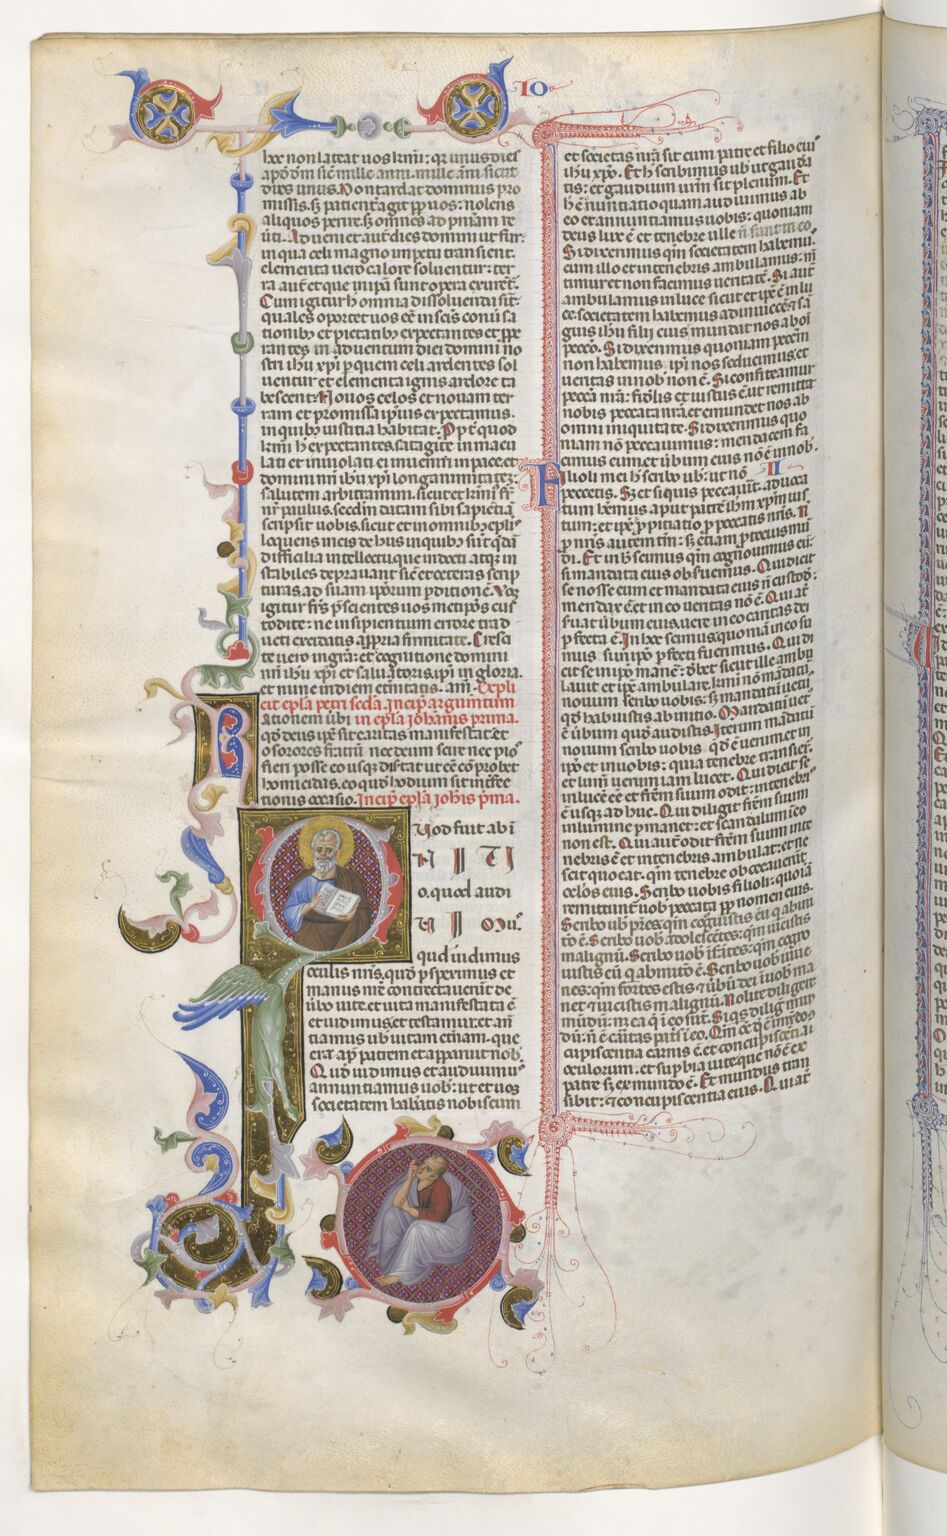 IO
hoc non lateat uos kr̄mi: qr̄ unus dies
ap̄ d̄m sic̄ mille anni. mille ām̄ sicut
dies unus. Non tardat dominus pro
missis. s; patienť agit pp̄ uos: nolens
aliquos perire. s; omnes ad pn̄iam re
ūti. Adueniet aut̄ dies domini ut fur:
in qua celi magno impetu transient.
elementa uero calore soluentur: ter
ra aut̄ et que in ip̄a sunt opera exurēť.
Cum igitur h̄ omnia dissoluenda sīt:
quales oportet uos ēē in sc̄is conūsa
tionib; et pietatib; expectantes et p̄pe
rantes in aduentum diei domini no
stri ih̄u xp̄i p̄ quem celi ardentes sol
uentur et elementa ignis ardore ta
bescent. Nouos celos et nouam ter
ram et promissa ip̄ius expectamus.
in quib; iustitia habitat. Pp̄t̄ quod
kr̄mi h̄ expectantes. satagite inmacu
lati et inuiolati ei inueniri in pace. et
domini nr̄i ih̄u xp̄i longanimitatē:
salutem arbitramini. sicut et kr̄mꝰ fr̄
nr̄ paulus. sc̄dm datam sibi sapīētiā
scripsit uobis. sicut et in omnib; epl̄is
loquens in eis de his in quib; sūt q̄dā
difficilia intellectu. que indocti atq; in
stabiles deprauant sic̄ et ceteras scrip
turas. ad suam ip̄orum p̄ditionē. Vos
igitur fr̄s p̄scientes uosmetip̄os cus
todite: ne insipientium errore trad
ucti excedatis a p̄pria firmitate. Cresci
te uero in gr̄a: et cognitione domini
nr̄i ih̄u xp̄i et saluatoris. ip̄i gloria.
et nunc et in diem et̄nitatis. am̄. Expli
cit epl̄a petri sc̄da. incip̄ argum̄tum
Rationem ūbi in epl̄a ioh̄annis prima.
qđ deus ip̄e sit caritas manifestat. et
osorores fratrū nec deum scire nec pio
fieri posse eousq; distat ut eē cōprobet
homicidas. eo quō hodium sit inf̄fec
tionis occasio. Incip̄ epl̄a ioh̄is p̄ma.
Quod fuit ab i
NITI
o. quod audi
VI Muꝰ.
quod uidimus
oculis nr̄is. quō p̄speximus et
manus nr̄e contrectauerūt de
ūbo uite. et uita manifestata ē
et uidimus. et testamur. et an̄
tiamus ub̄ uitam et̄nam. que
erat ap̄ patrem et apparuit nob̄.
Quō uidimus et audiuimꝰ
annuntiamus uob̄: ut et uos
societatem habeatis nobiscum
et societas nr̄a sit cum patre et filio eiꝰ
ih̄u xp̄o. Et h̄ scribimus ub̄ ut gaudea
tis: et gaudium ur̄m sit plenum. Et
h̄ ē nuntiatio quam audiuimus ab
eo et annuntiamus uobis: quoniam
deus lux ē et tenebre ulle n̄ sunt in eo.
Si dixerimus qm̄ societatem habemꝰ
cum illo et in tenebris ambulamus: m̄
timur et non facimus ueritatē. Si aut̄
ambulamus in luce sicut et ip̄e ē in lu
ce. societatem habemus adinuicē. et sā
guis ih̄u filii eius mundat nos ab oī
pecc̄o. Si dixerimus quoniam pecc̄m
non habemus. ip̄i nos seducimus. et
ueritas in nob̄ non ē. Si confiteamur
pecc̄a nr̄a: fidelis et iustus ē ut remittat
nobis peccata nr̄a. et emundet nos ab
omni iniquitate. Si dixerimus quo
niam nō peccauimus: mendacem fa
cimus eum. et ūbum eius nō ē in nob̄.
Filioli mei h̄ scribo ub̄: ut nō II
peccetis. Set si quis peccauit̄. aduoca
tum hēmus aput patrē ih̄m xp̄m ius
tum: et ip̄e ē p̄pitiatio p̄ peccatis nr̄is. N̄
p̄ nr̄is autem tm̄: s; etiam p̄ totius mū
di. Et in h̄ scimus qm̄ cognouimus eū:
si mandata eius obs̄uemus. Qui dicit
se nosse eum et mandata eius n̄ custod̄:
mendax ē. et in eo ueritas nō ē. Qui aūt
s̄uat ūbum eius. uere in eo caritas dei
p̄fecta ē. In hoc scimus quoniā in eo su
mus si in ip̄o p̄fecti fuerimus. Qui di
cit se in ip̄o manē: d̄bet sicut ille ambu
lauit et ip̄e ambulare. kr̄mi nō mādatū
nouum scribo uobis: s; mandatū uetꝰ.
qđ habuistis ab initio. Mandatū uetꝰ
ē ūbum quō audistis. Iterum mādatū
nouum scribo uobis. qđ ē uerum et in
ip̄o et in uobis: quia tenebre transier̄.
et lum̄ uerum iam lucet. Qui dicit se
in luce ēē et fr̄em suum odit: in tenebrꝰ
ē usq; adhuc. Qui diligit fr̄em suum
in lumine p̄manet: et scandalum ī eo
non est. Qui aut̄ odit fr̄em suum in te
nebris ē et in tenebris ambulat: et ne
scit quo eat. qm̄ tenebre obcecauerūt
oc̄los eius. Scribo uobis filioli: quoiā
remittunť uob̄ peccata pp̄ nomen eius.
Scribo ub̄ pr̄es. qm̄ coḡuistis eū q̄ ab ini
tō ē. Scribo uob̄ adolescētes: qm̄ uicistis
malignū. Scribo uob̄ īfātes: qm̄ cogno
uistis eū q̄ ab initō ē. Scribo uob̄ iuue
nes: qm̄ fortes estis et ūbū dei ī uob̄ ma
net et uicistis malignū. Nolite diligere
mūdū: n̄ ea q̄ ī eo sūt. Si q̄s dilig̃ mun
dū: n̄ ē cāritas patr̄s ī eo. Qm̄ oē q̄ ē ī mūdo
cupiscentia carnis ē. et concupiscētia
oculorum. et supbia uite. que nō ē ex
patre s; ex mundo ē. Et mundus tran
sibit: et concupiscentia eius. Qui aūt